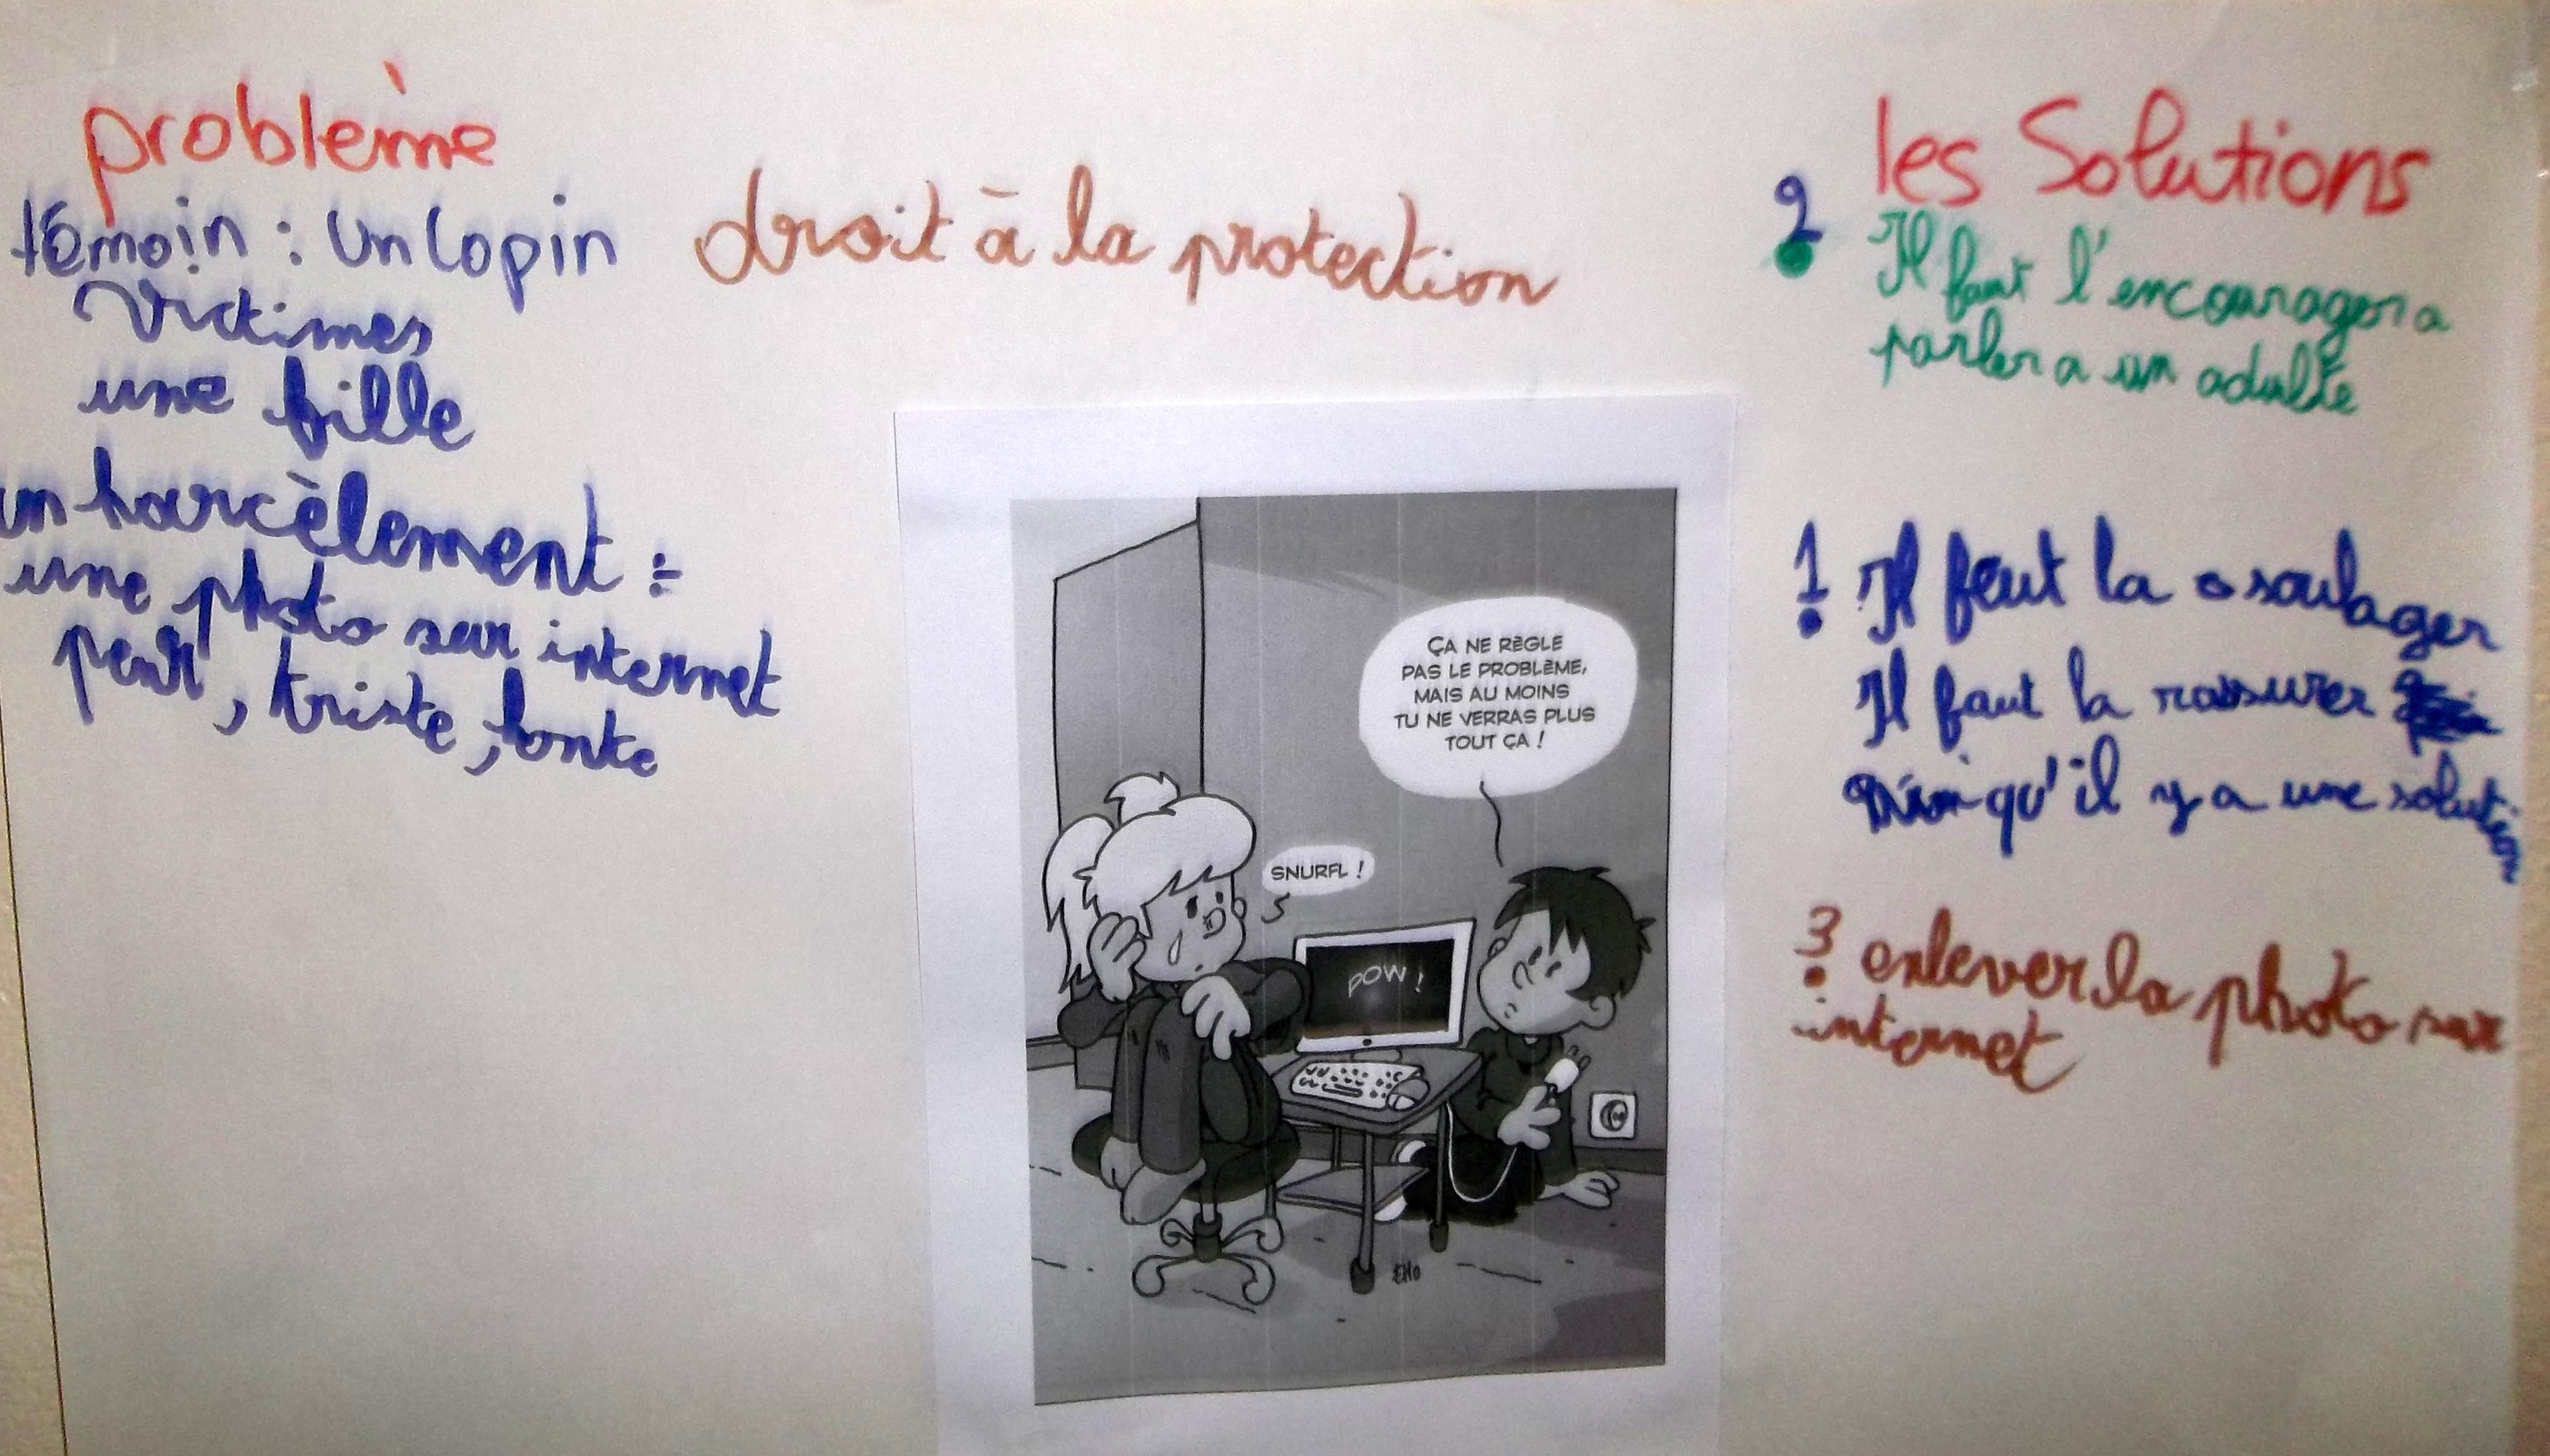 problème
témoin : un copin
Victimes
une fille
un harcèlement :
une photo sur internet
peur, triste, honte
droit à la protection
ÇA NE RÈGLE
PAS LE PROBLÈME,
MAIS AU MOINS
TU NE VERRAS PLUS
TOUT ÇA !
SNURFL !
POW !
ENO
les Solutions
2 Il faut l'encourager a
parler a un adulte
1 Il faut la soulager
Il faut la rassurer
qu'il y a une solution
3 enlever la photo sur
internet